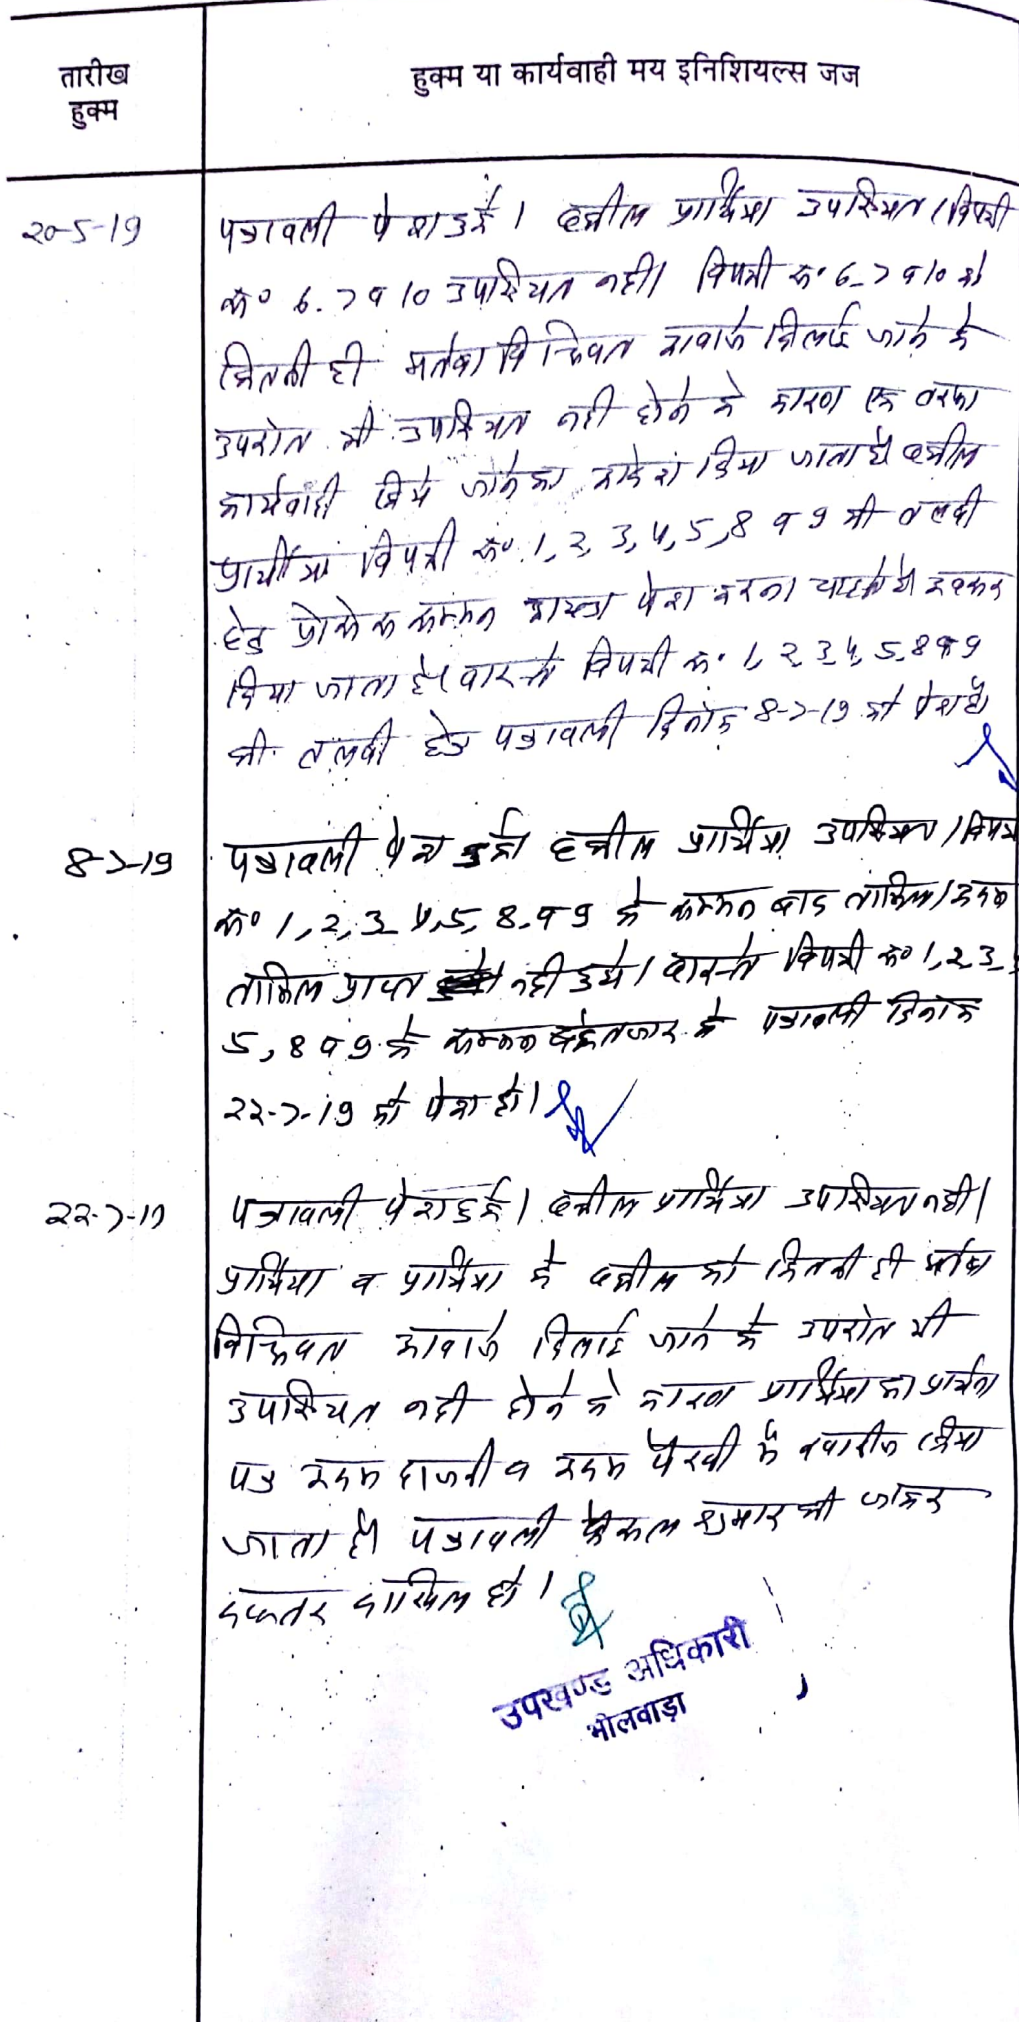 तारीख
हुक्म
हुक्म या कार्यवाही मय इनिशियल्स जज
20-5-19
पत्रावली पेश हुई। वकील प्रार्थिया उपस्थित। विपक्षी
क्र० 6.7 व 10 उपस्थित नहीं। विपक्षी क्र० 6.7 व 10 को
कितनी ही मर्तबा विधिवत आवाजे दिलाई जाने के
उपरोत भी उपस्थित नही होने के कारण एक तरफा
कार्यवाही किये जाने का आदेश दिया जाता है। वकील
प्रार्थीया विपक्षी क्र० 1, 2, 3, 4, 5, 8 व 9 की तलबी
हेतु सम्मन पेश करना चाहते है।
किया जाता है। वास्ते विपक्षी क्र० 1, 2, 3, 4, 5, 8 व 9
की तलबी हेतु पत्रावली दिनांक 8-7-19 को पेश हो
8-7-19
पत्रावली पेश हुई वकील प्रार्थिया उपस्थित। विपक्षी
क्र० 1, 2, 3, 4, 5, 8, व 9 के सम्मन बाद तामिल। अदम
तामिल प्राप्त नही हुये। वास्ते विपक्षी क्र० 1, 2, 3,
5, 8 व 9 के सम्मन इन्तजार के पत्रावली दिनांक
22-7-19 को पेश हो।
22-7-19
पत्रावली पेश हुई। वकील प्रार्थिया उपस्थित नही।
प्रार्थिया व प्रार्थिया के वकील को कितनी ही मर्तबा
विधिवत आवाजे दिलाई जाने के उपरोत भी
उपस्थित नही होने के कारण प्रार्थिया का प्रार्थना
पत्र अदम हाजरी व अदम पैरवी मे खारीज किया
जाता है। पत्रावली फैसल शुमार की जाकर
दफ्तर दाखिल हो।
उपखण्ड अधिकारी
भीलवाड़ा